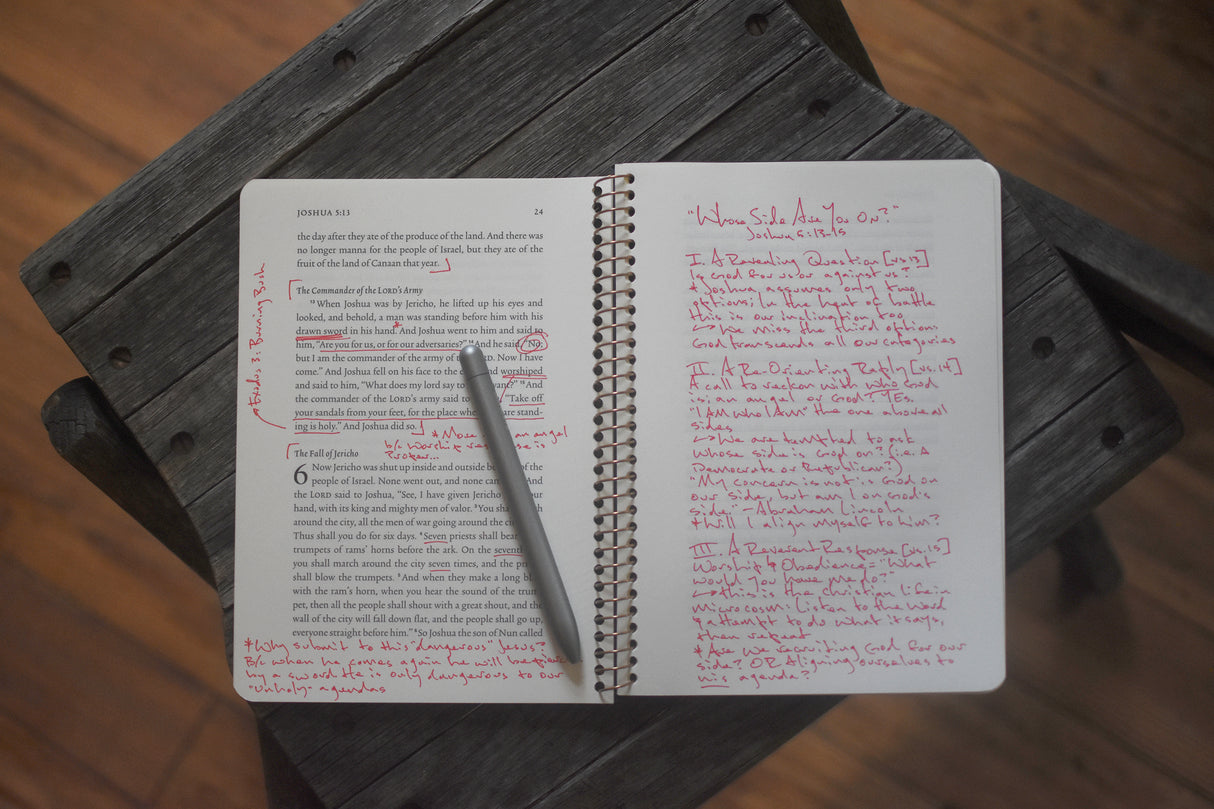 JOSHUA 5:13 24
the day after they ate of the produce of the land. And there was
no longer manna for the people of Israel, but they ate of the
fruit of the land of Canaan that year.
The Commander of the LORD's Army
13 When Joshua was by Jericho, he lifted up his eyes and
looked, and behold, a man was standing before him with his
drawn sword in his hand.* And Joshua went to him and said to
him, "Are you for us, or for our adversaries?" 14 And he said, "No;
but I am the commander of the army of RD. Now I have
come." And Joshua fell on his face to the and worshiped
and said to him, "What does my lord say to " 15 And
the commander of the LORD's army said to "Take off
your sandals from your feet, for the place whe are stand-
ing is holy." And Joshua did so.
→Exodus 3: Burning Bush
*More an angel
b/c worship is
proper...
The Fall of Jericho
6 Now Jericho was shut up inside and outside be of the
people of Israel. None went out, and none can And
the LORD said to Joshua, "See, I have given Jericho our
hand, with its king and mighty men of valor. 3 You sha
around the city, all the men of war going around the ci
Thus shall you do for six days. 4 Seven priests shall bear
trumpets of rams' horns before the ark. On the seventh
you shall march around the city seven times, and the pr
shall blow the trumpets. 5 And when they make a long bl
with the ram's horn, when you hear the sound of the trum
pet, then all the people shall shout with a great shout, and the
wall of the city will fall down flat, and the people shall go up,
everyone straight before him." 6 So Joshua the son of Nun called
*Why submit to this "dangerous" Jesus?
B/c when he comes again he will be
by a sword. He is only dangerous to our
"unholy" agendas
"Whose Side Are You On?"
Joshua 5:13-15
I. A Revealing Question [vs.13]
Is God for us or against us?
* Joshua assumes only two
options; In the heat of battle
this is our inclination too
→We miss the third option:
God transcends all our categories
II. A Re-Orienting Reply [vs.14]
A call to reckon with who God
is: an angel or God? YES.
"I AM Who I Am" the one above all
sides
→We are tempted to ask
whose side is God on? (i.e. A
Democrate or Republican?)
"My concern is not is God on
our side, but am I on God's
side." - Abraham Lincoln
*Will I align myself to him?
III. A Reverent Response [vs.15]
Worship & Obedience = "What
would you have me do?"
→this is the Christian life in
microcosm: Listen to the word
& attempt to do what it says,
then repeat
* Are we recruiting God for our
side? OR Aligning ourselves to
his agenda?